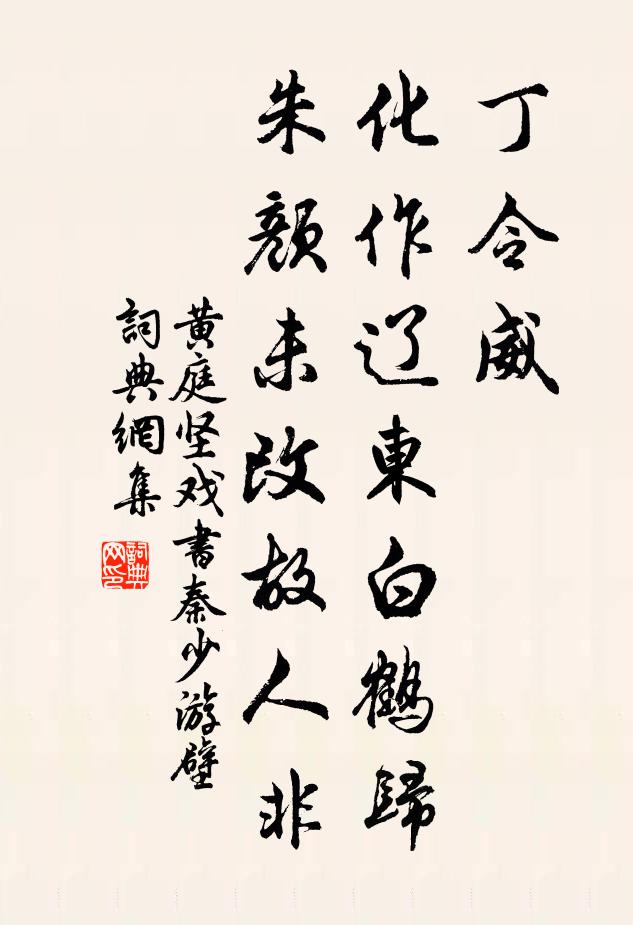 丁令威
化作辽東白鹤歸
朱颜未改故人非
黄庭坚戏書秦少游壁
詞典網集
詞典网印